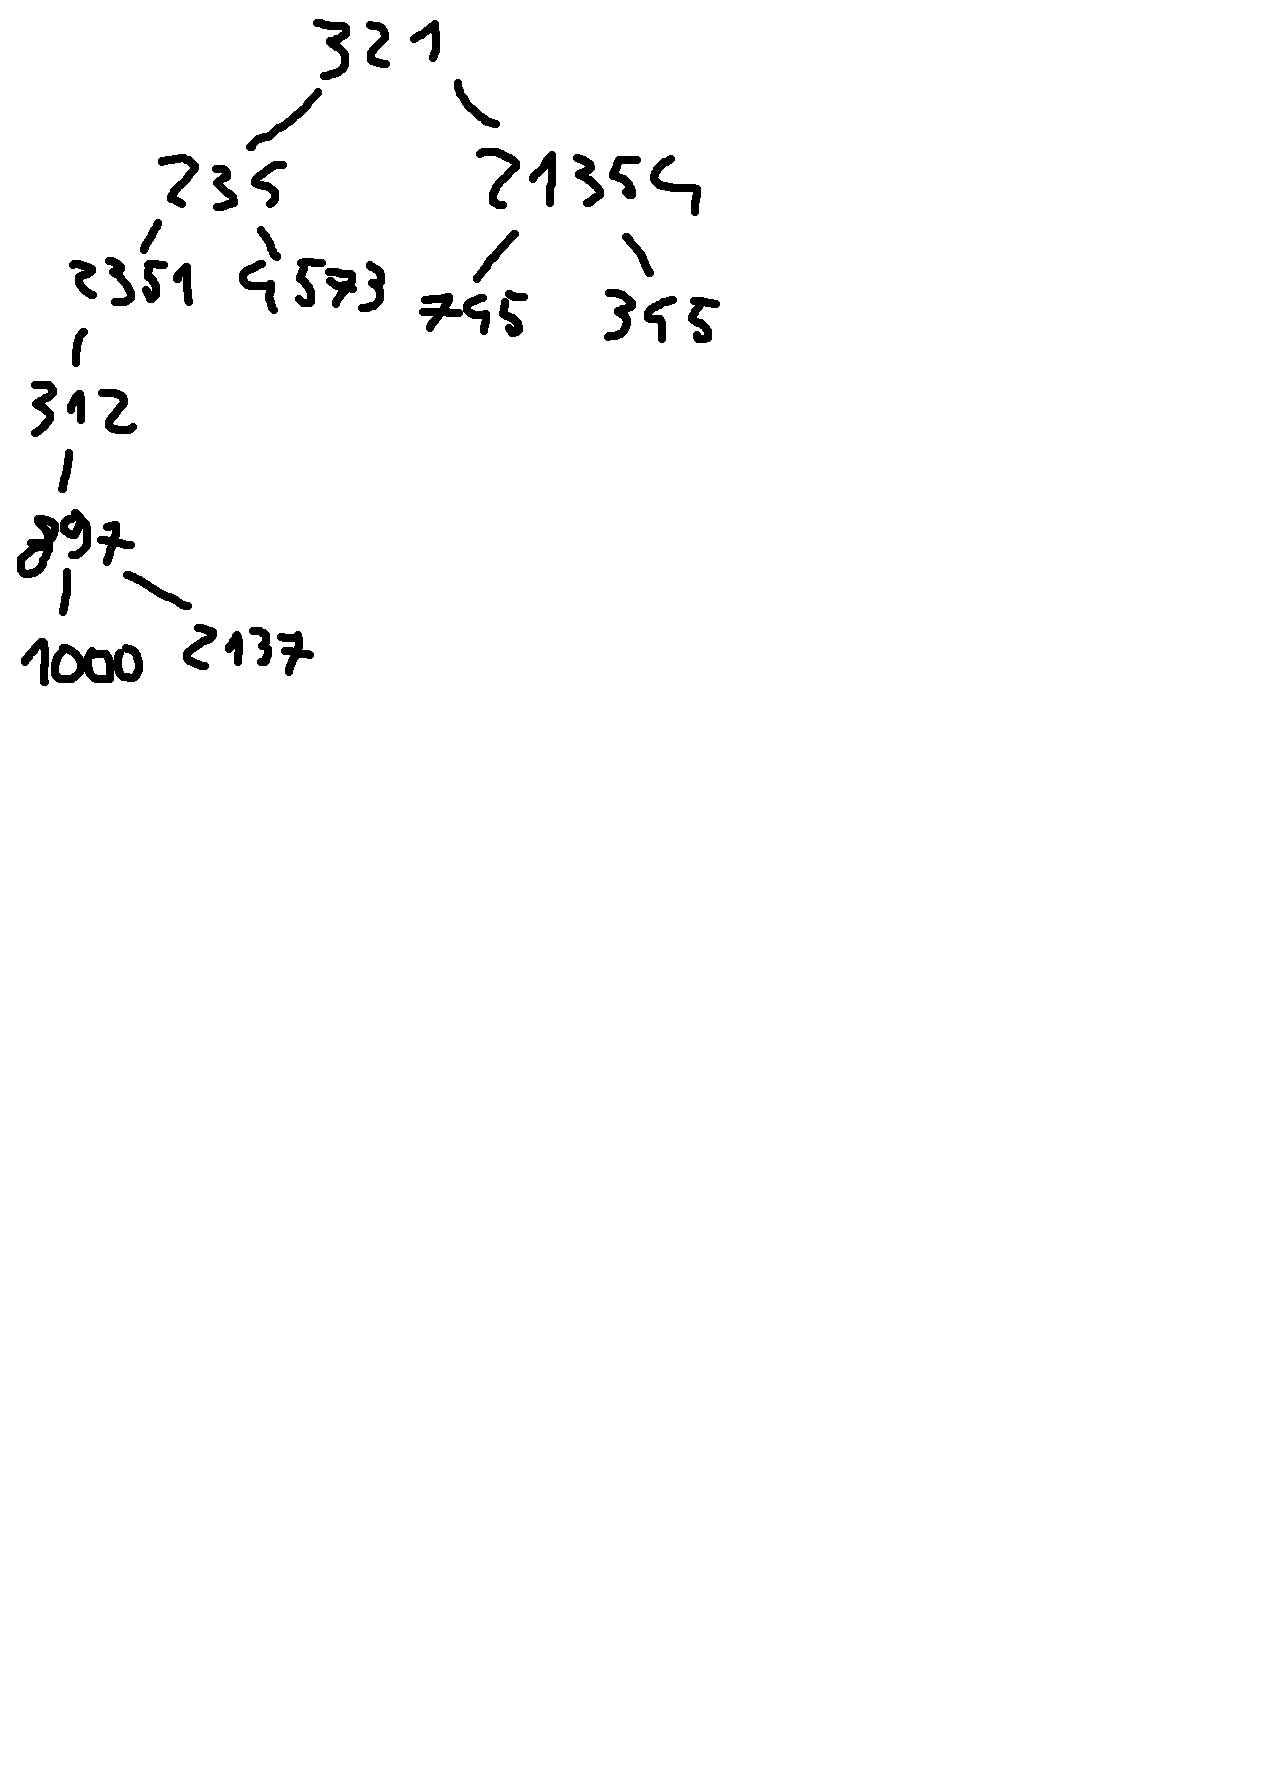 321
235 21354
2351 4573 745 345
312
897
1000 2137